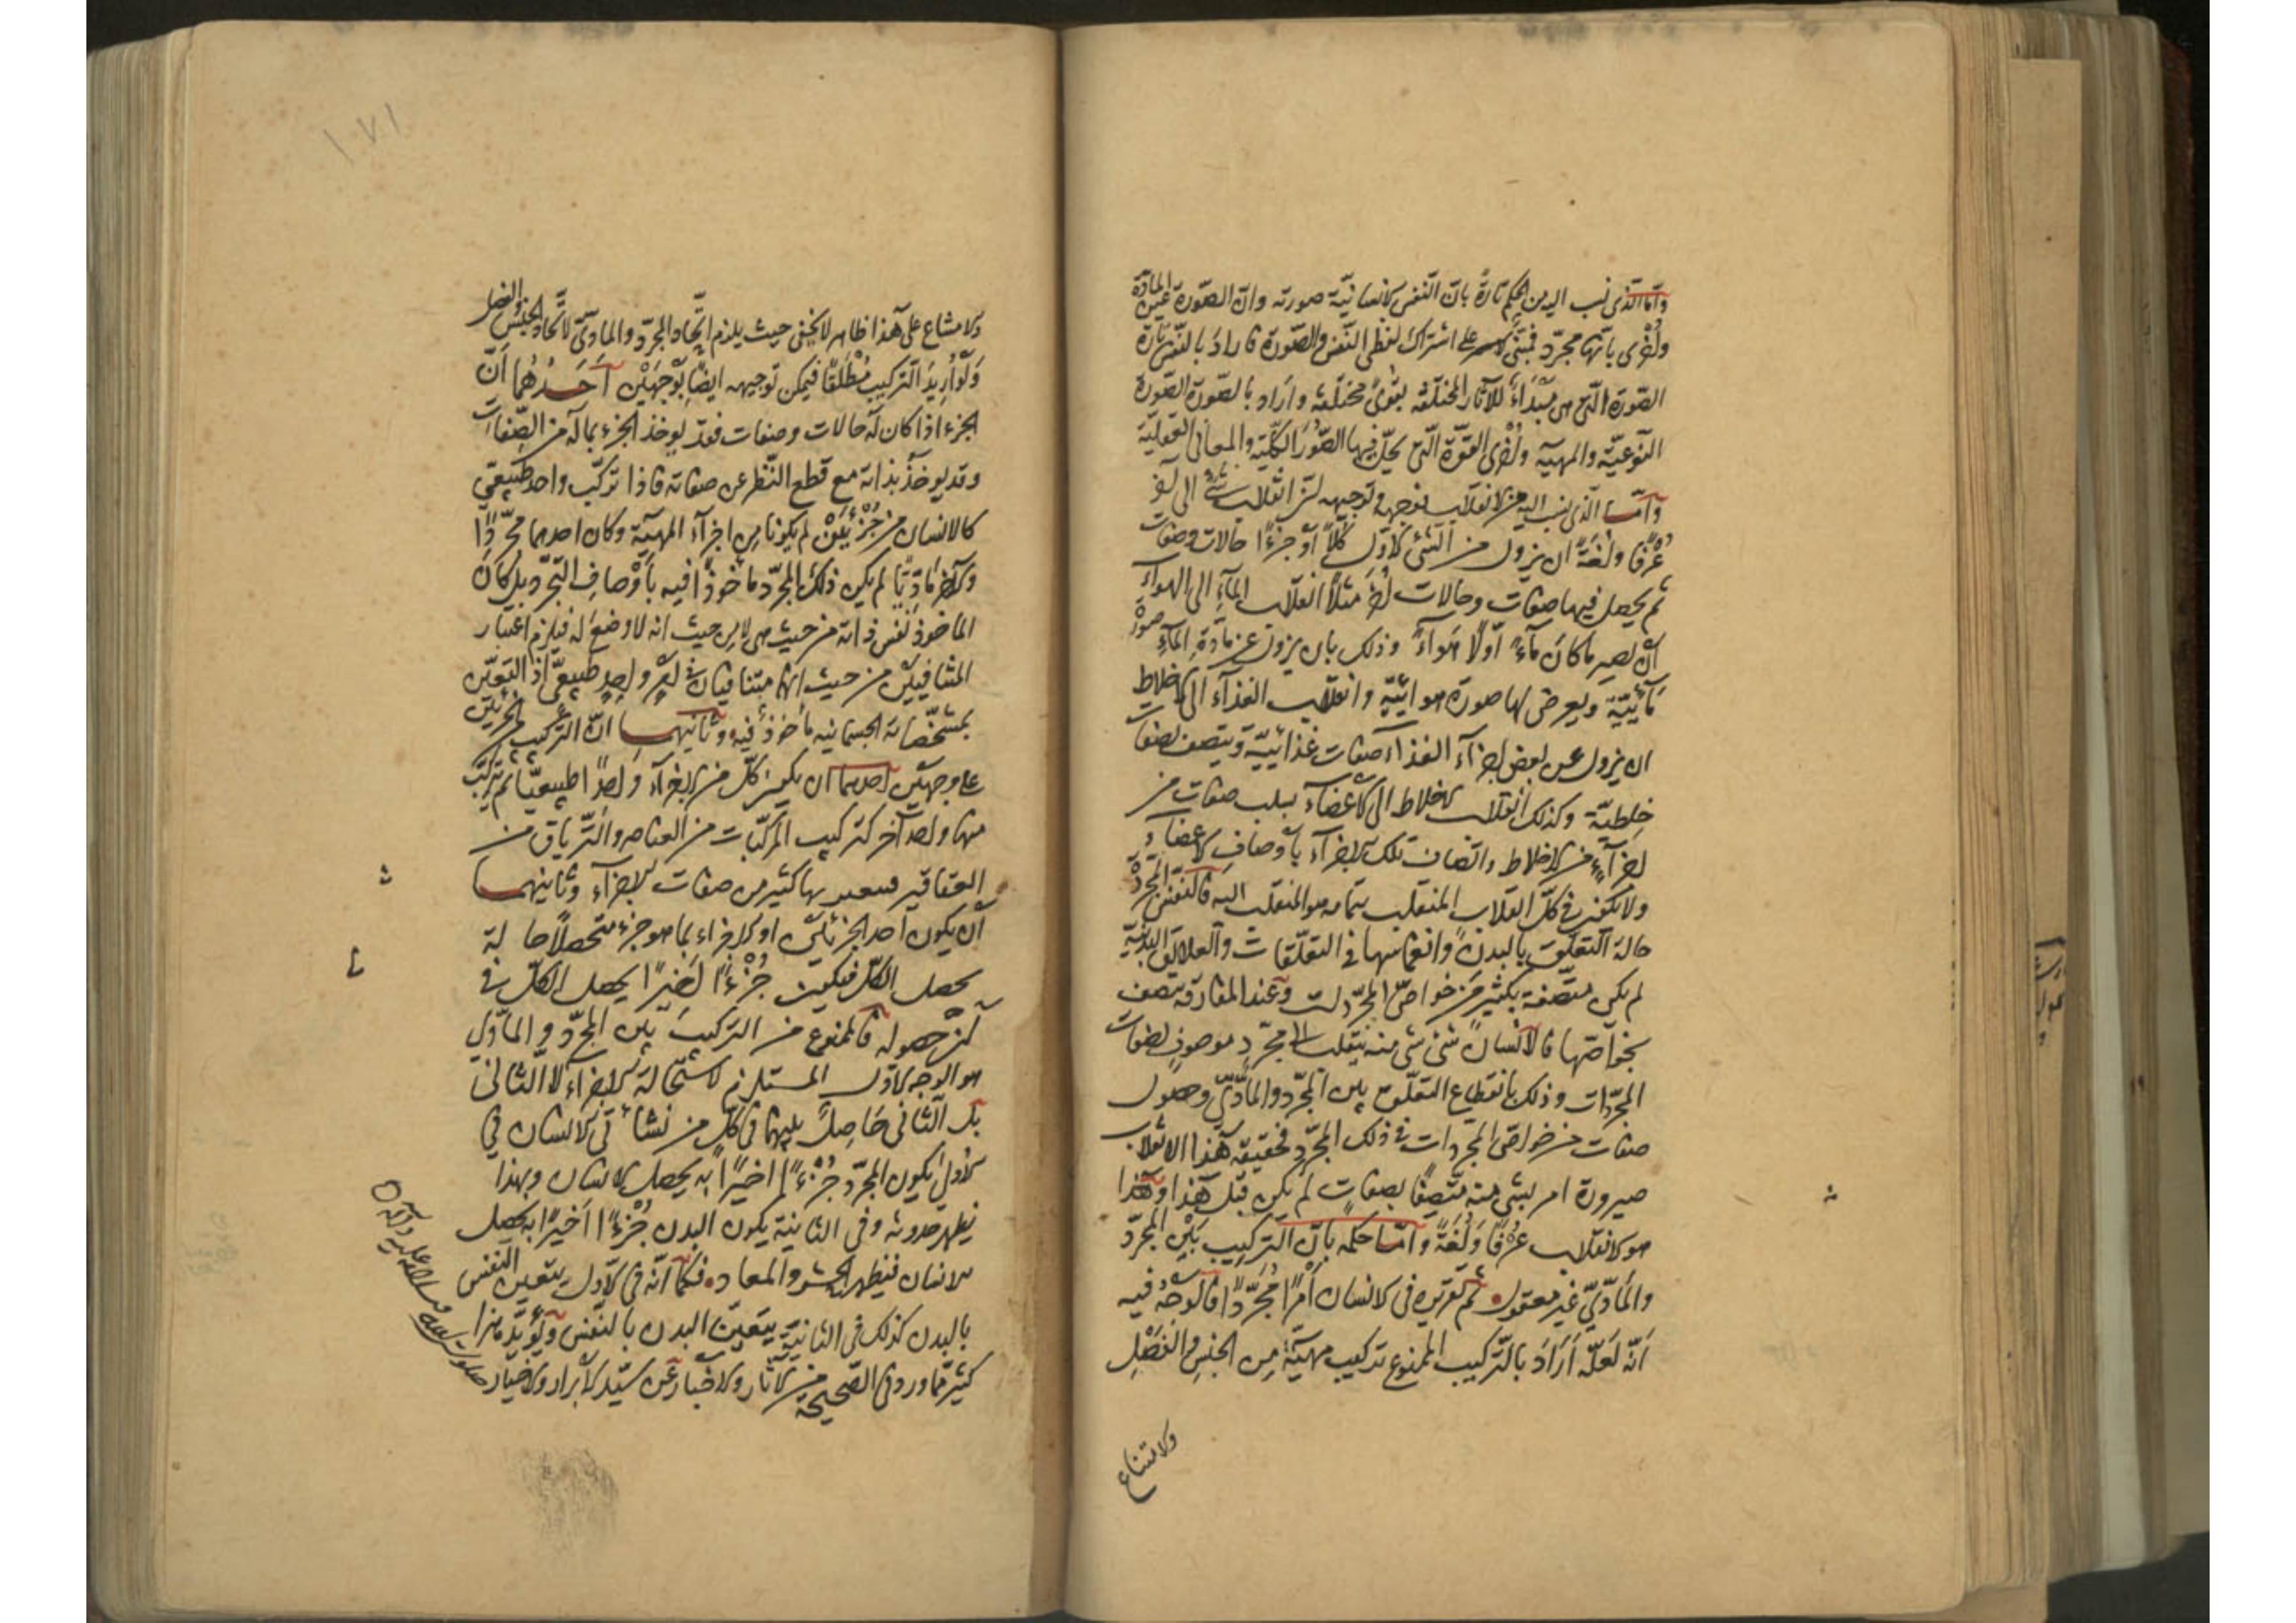 وأمّا الذي نسب الى من الحكم تارةً بانّ النفس الانسانيّة صورته وانّ الصّورة عين المادّة
واُخرى بانّها مجرّد فمبنىّ على اشتراك لفظى النّفس والصّورة فاراد بالنّفس تارة
الصّورة الّتي هي مبدأ للآثار المختلفة بقوىً مختلفة واراد بالصّورة الصّورة
النّوعيّة والمهية واُخرى القوّة الّتي يحلّ فيها الصّور الكلّية والمعانى العقليّة
وامّا الّذى نسب اليه من الانقلاب فوجهه وتوجيهه انّ انقلاب شئ الى آخر
عُرفًا ولُغةً ان يزول من الشئ الاوّل كلّاً أو جزءًا حالات وصفات
ثم يحصل فيها صفات وحالات اُخر مثلاً انقلاب الماء الى الهواء
ان يصير ما كان ماءً اوّلًا هواءً وذلك بان يزول عن مادّة الماء صورة
مائيّة ويعرض لها صورة هوائيّة وانقلاب الغذاء الى الاخلاط
ان يزول عن بعض اجزاء الغذاء صفات غذائيّة ويتصف بصفات
خلطيّة وكذلك انقلاب الاخلاط الى الاعضاء بسلب صفات من
اجزاءٍ من الاخلاط واتصاف تلك الاجزاء بأوصاف الاعضاء و
ولا يكون في كلّ انقلاب المنقلب بتمامه هو المنقلب اليه فالنفس المجرّدة
حالة التعلّق بالبدن وانغماسها في التعلّقات والعلائق البدنيّة
لم يكن متّصفة بكثير من خواصّ المجرّدات وعند المفارقة يتّصف
بخواصّها فالانسان شئ شئ منه ينقلب الى مجرّدٍ موصوفٍ بصفات
المجرّدات وذلك بانقطاع التعلّق بين المجرّد والمادّىّ وحصول
صفات من خواص المجردات في ذلك المجرّد فحقيقة هذا الانقلاب
صيرورة امر بشئ منه متّصفًا بصفاتٍ لم يكن قبل هذا وهذا
هو الانقلاب عُرفًا ولُغةً وامّا حكمه بانّ التّركيب بين المجرّد
والمادّيّ غير معقول ثم تقريره في الانسان أمرًا مُجرّدًا فالوجهُ فيه
أنّه لعلّه أرادَ بالتّركيب الممنوع تركيب مهيّة مِن الجنس والفَصْلِ
والامتناع
١٧١
والامتناع على هذا ظاهر لا يخفى حيث يلزم اتّحاد المجرّد والمادّىّ لاتّحاد الجنس والفصل
وَلَو اُرِيدَ التّركيب مُطْلَقًا فيمكن توجيهه ايضًا بوَجهَيْن أحَدُهُما أنّ
الجزء اذا كان له حالات وصفات فقد يوخذ الجزء بما له من الصّفات
وقد يوخَذُ بذاته مع قطع النّظر عن صفاته فاذا تركّب واحد طبيعي
كالانسان من جُزْئَيْن لم يكونا من اجزاء المهيّة وكان احدهما مجرّدًا
والآخر مادّيًّا لم يكن ذلك المجرّد ماخوذًا فيه بأوصاف التجرّد بل كانَ
الماخوذ نفس ذاته من حيث هي لا من حيث انه لا وضع له فيلزم اعتبار
المتنافيَيْن من حيث انّهما متنافيان في امر واحدٍ طبيعيّ اذ التعيّن
بمشخّصاته الجسمانيه مأخوذٌ فيه وثانيهما انّ التركيب من الجزئين
على وجهين احدهما ان يكون كلّ من الاجزاء واحدًا طبيعيًّا ثم يتركّب
منها واحد آخر كتركيب المركّبات من العناصر والتّرياق من
العقاقير بها كثير من صفات الاجزاء وثانيهما
أن يكون أحد الجزئين او الاجزاء بما هو جزء متحصّلاً حالة
يحصل الكلّ فيكون جُزْءًا اخيرًا يحصل الكلّ في
آنِ حصوله فالممنوع من التركيب بين المجرّد والمادّي
هو الوجه الاوّل المستلزم لاستحالة الاجزاء لا الثّانى
بل الثّانى حاصلٌ بينهما في كلّ من نشأتى الانسان في
الاولىٰ يكون المجرّد جُزْءًا اخيرًا به يحصل الانسان وبهذا
يظهر حدوثه وفي الثانية يكون البدن جُزْءًا أخيرًا به يحصل
الانسان فيظهر الحشر والمعاد فكما أنّه في الاول يتعين النفس
بالبدن كذلك في الثانية يتعيّن البدن بالنّفس ويُؤيّد هذا
كثير ممّا ورد في الصّحيحة من الآثار والاخبار عن سيّد الابرار والاخيار
صلوات الله وسلامه عليه وآله